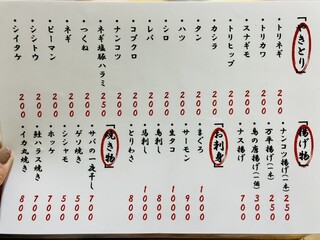 「やきとり」
・トリネギ 200
・トリカワ 200
・スナギモ 200
・トリヒップ 200
・カシラ 200
・タン 200
・ハツ 200
・シロ 200
・レバ 200
・コブクロ 200
・ナンコツ 200
・ネギ塩豚ハラミ 250
・つくね 200
・ネギ 200
・ピーマン 200
・シシトウ 200
・シイタケ 200
「揚げ物」
・ナンコツ揚げ(一本) 250
・万平揚げ(一本) 250
・鳥の唐揚げ(一個) 300
・ナス揚げ 700
「お刺身」
・まぐろ
・サーモン 900
・生タコ
・馬刺し
・鳥刺し
・とりわさ 800
「焼き物」
・サバの一夜干し 700
・ゲソ焼き 500
・シシャモ 500
・ホッケ 700
・鮭ハラス焼き 700
・イカ丸焼き 800